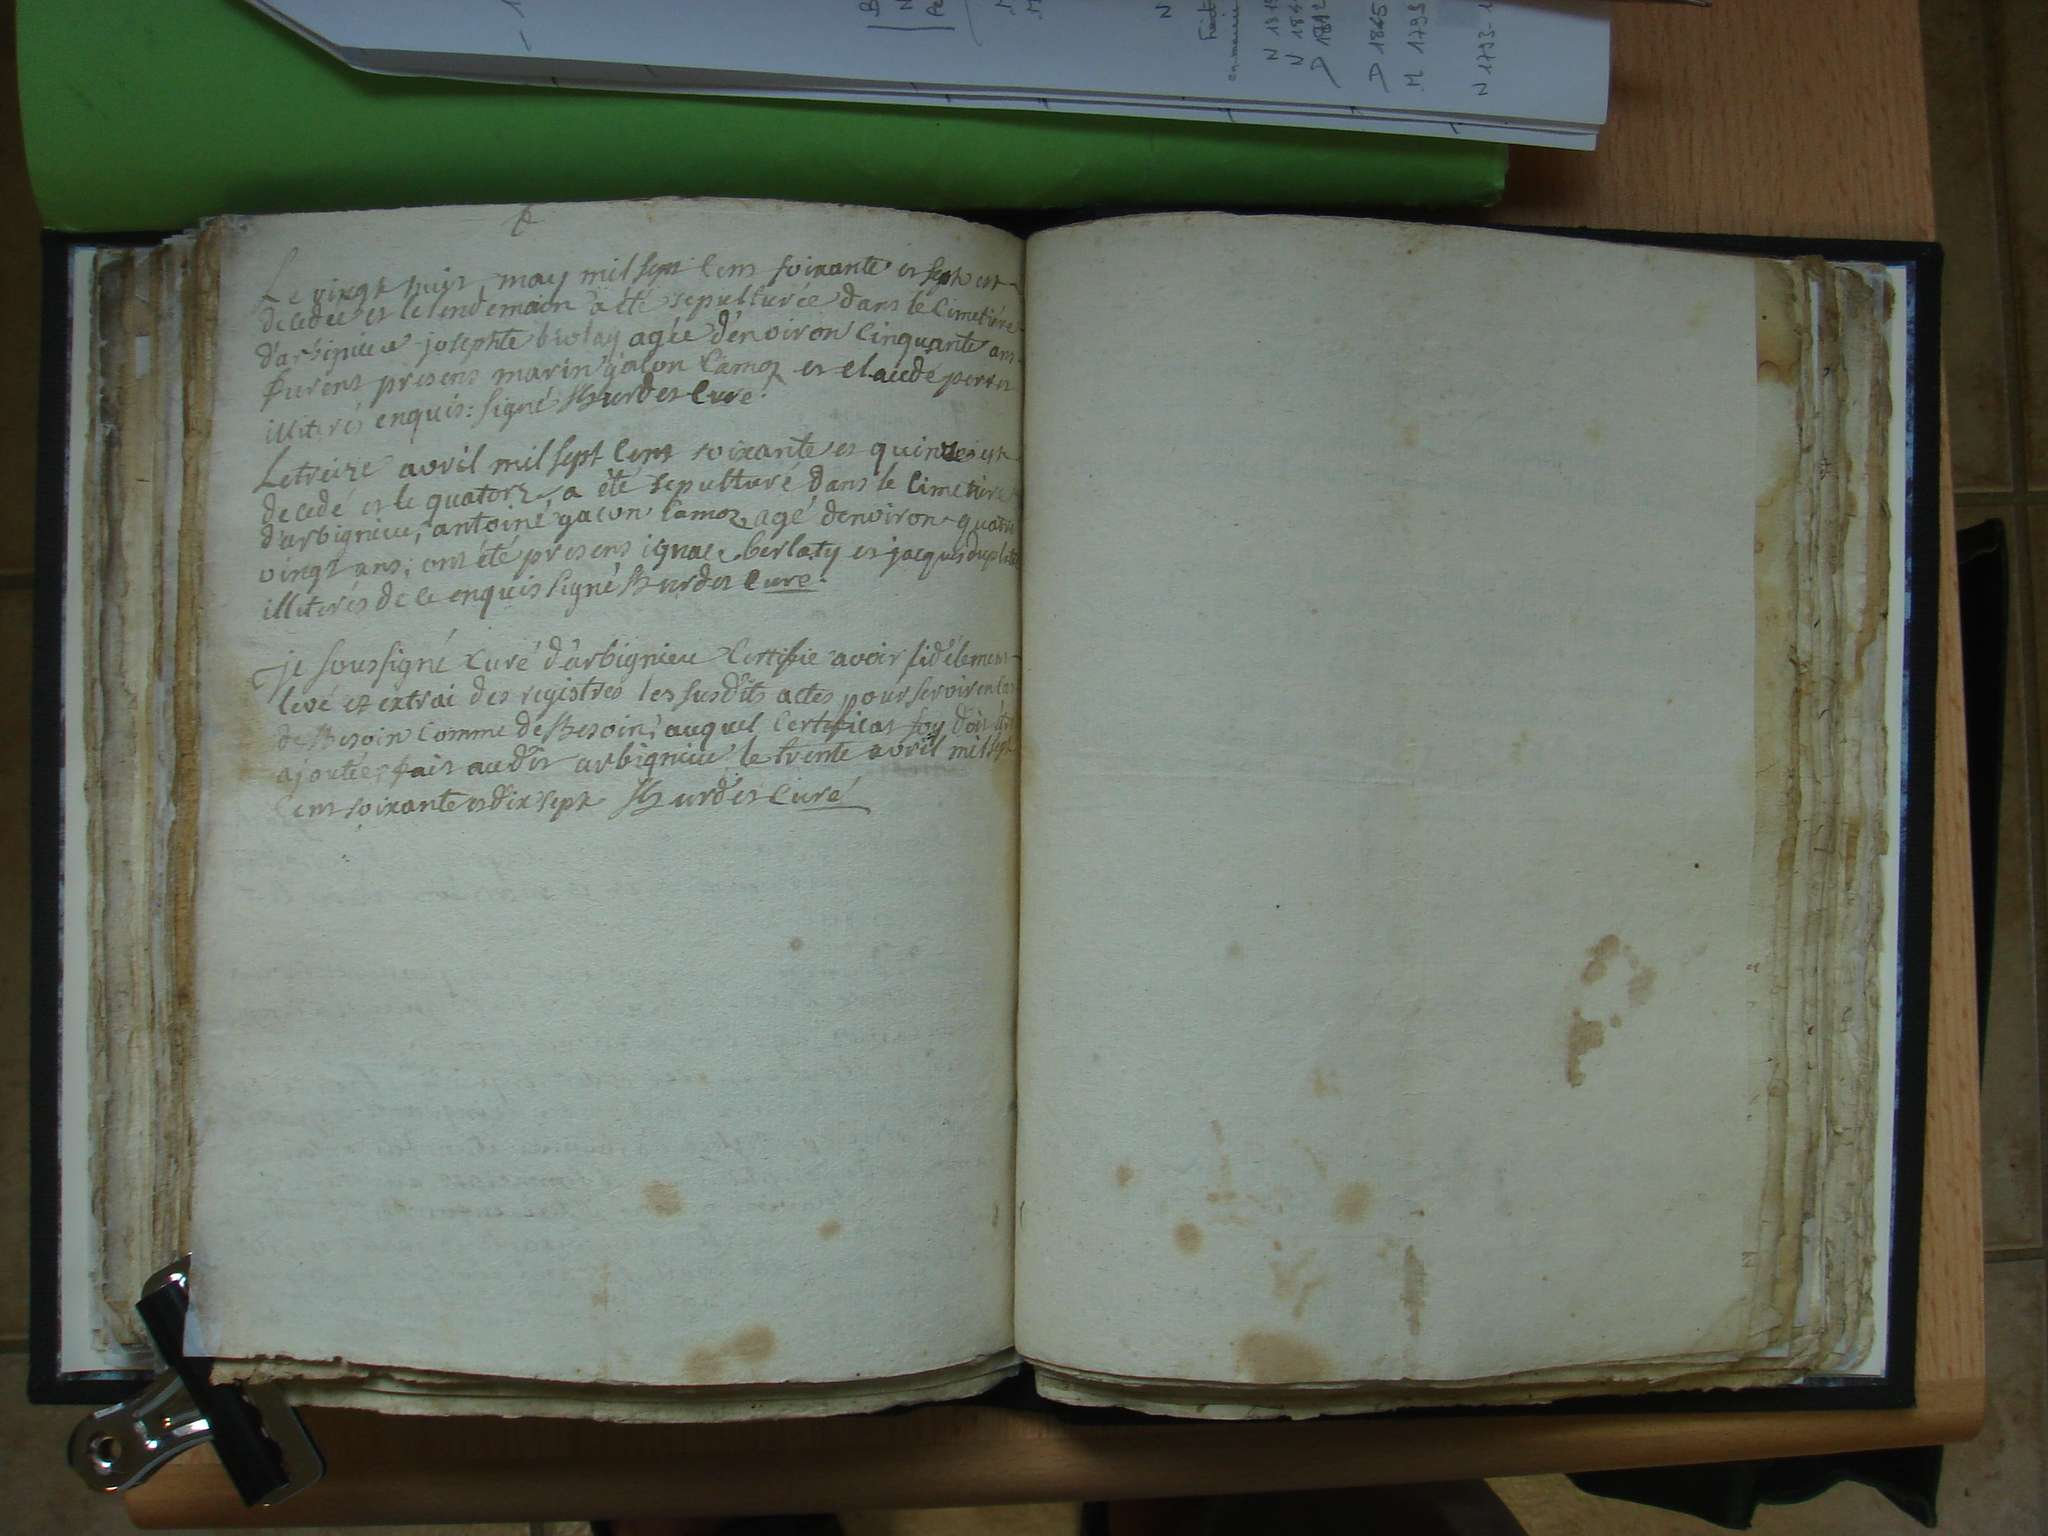 Le vingt huit, may mil sept cent soixante et sept est
decedée et le lendemain a été sepulturée dans le Cimetiére
d'arbignieu josephte agée d'énviron Cinquante ans
furent presens marin et claude perret
illiterés enquis: signé hurdet Curé.
Le treize avril mil sept Cent soixante et quinze est
decedé et le quatorze a été sepulturé dans le Cimetiére
d'arbignieu, antoine agé denviron quatre
vingt ans; ont été presens ignace berlaty et jacques
illiterés de ce enquis signé hurdet Curé.
je soussigné Curé d'arbignieu Certifie avoir fidélement
levé et extrai des registres les susdits actes pour servir en cas
de Besoin Comme de Besoin, auquel Certificat foy doit étre
ajoutée, fait audit arbignieu le trente avril mil sept
Cent soixante et dix sept hurdet Curé
N 1793-1
M 1793
D 1865
D 1892